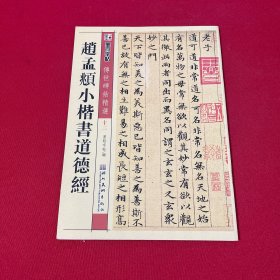 墨点字帖
傳世碑帖精選
趙孟頫小楷書道德經
湖北美術出版社
老子
道可道非常道名可名非常名無名天地之始
有名萬物之母常無欲以觀其妙常有欲以觀
其徼此兩者同出而異名同謂之玄玄之又玄衆
妙之門
天下皆知美之為美斯惡已皆知善之為善斯不
善已故有無之相生難易之相成長短之相形高